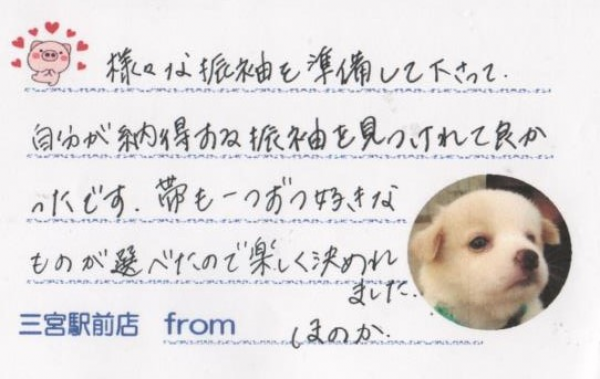 様々な振袖を準備して下さって.
自分が納得する振袖を見つけれて良か
ったです. 帯も一つずつ好きな
ものが選べたので楽しく決めれ
ました.
三宮駅前店 from ほのか.